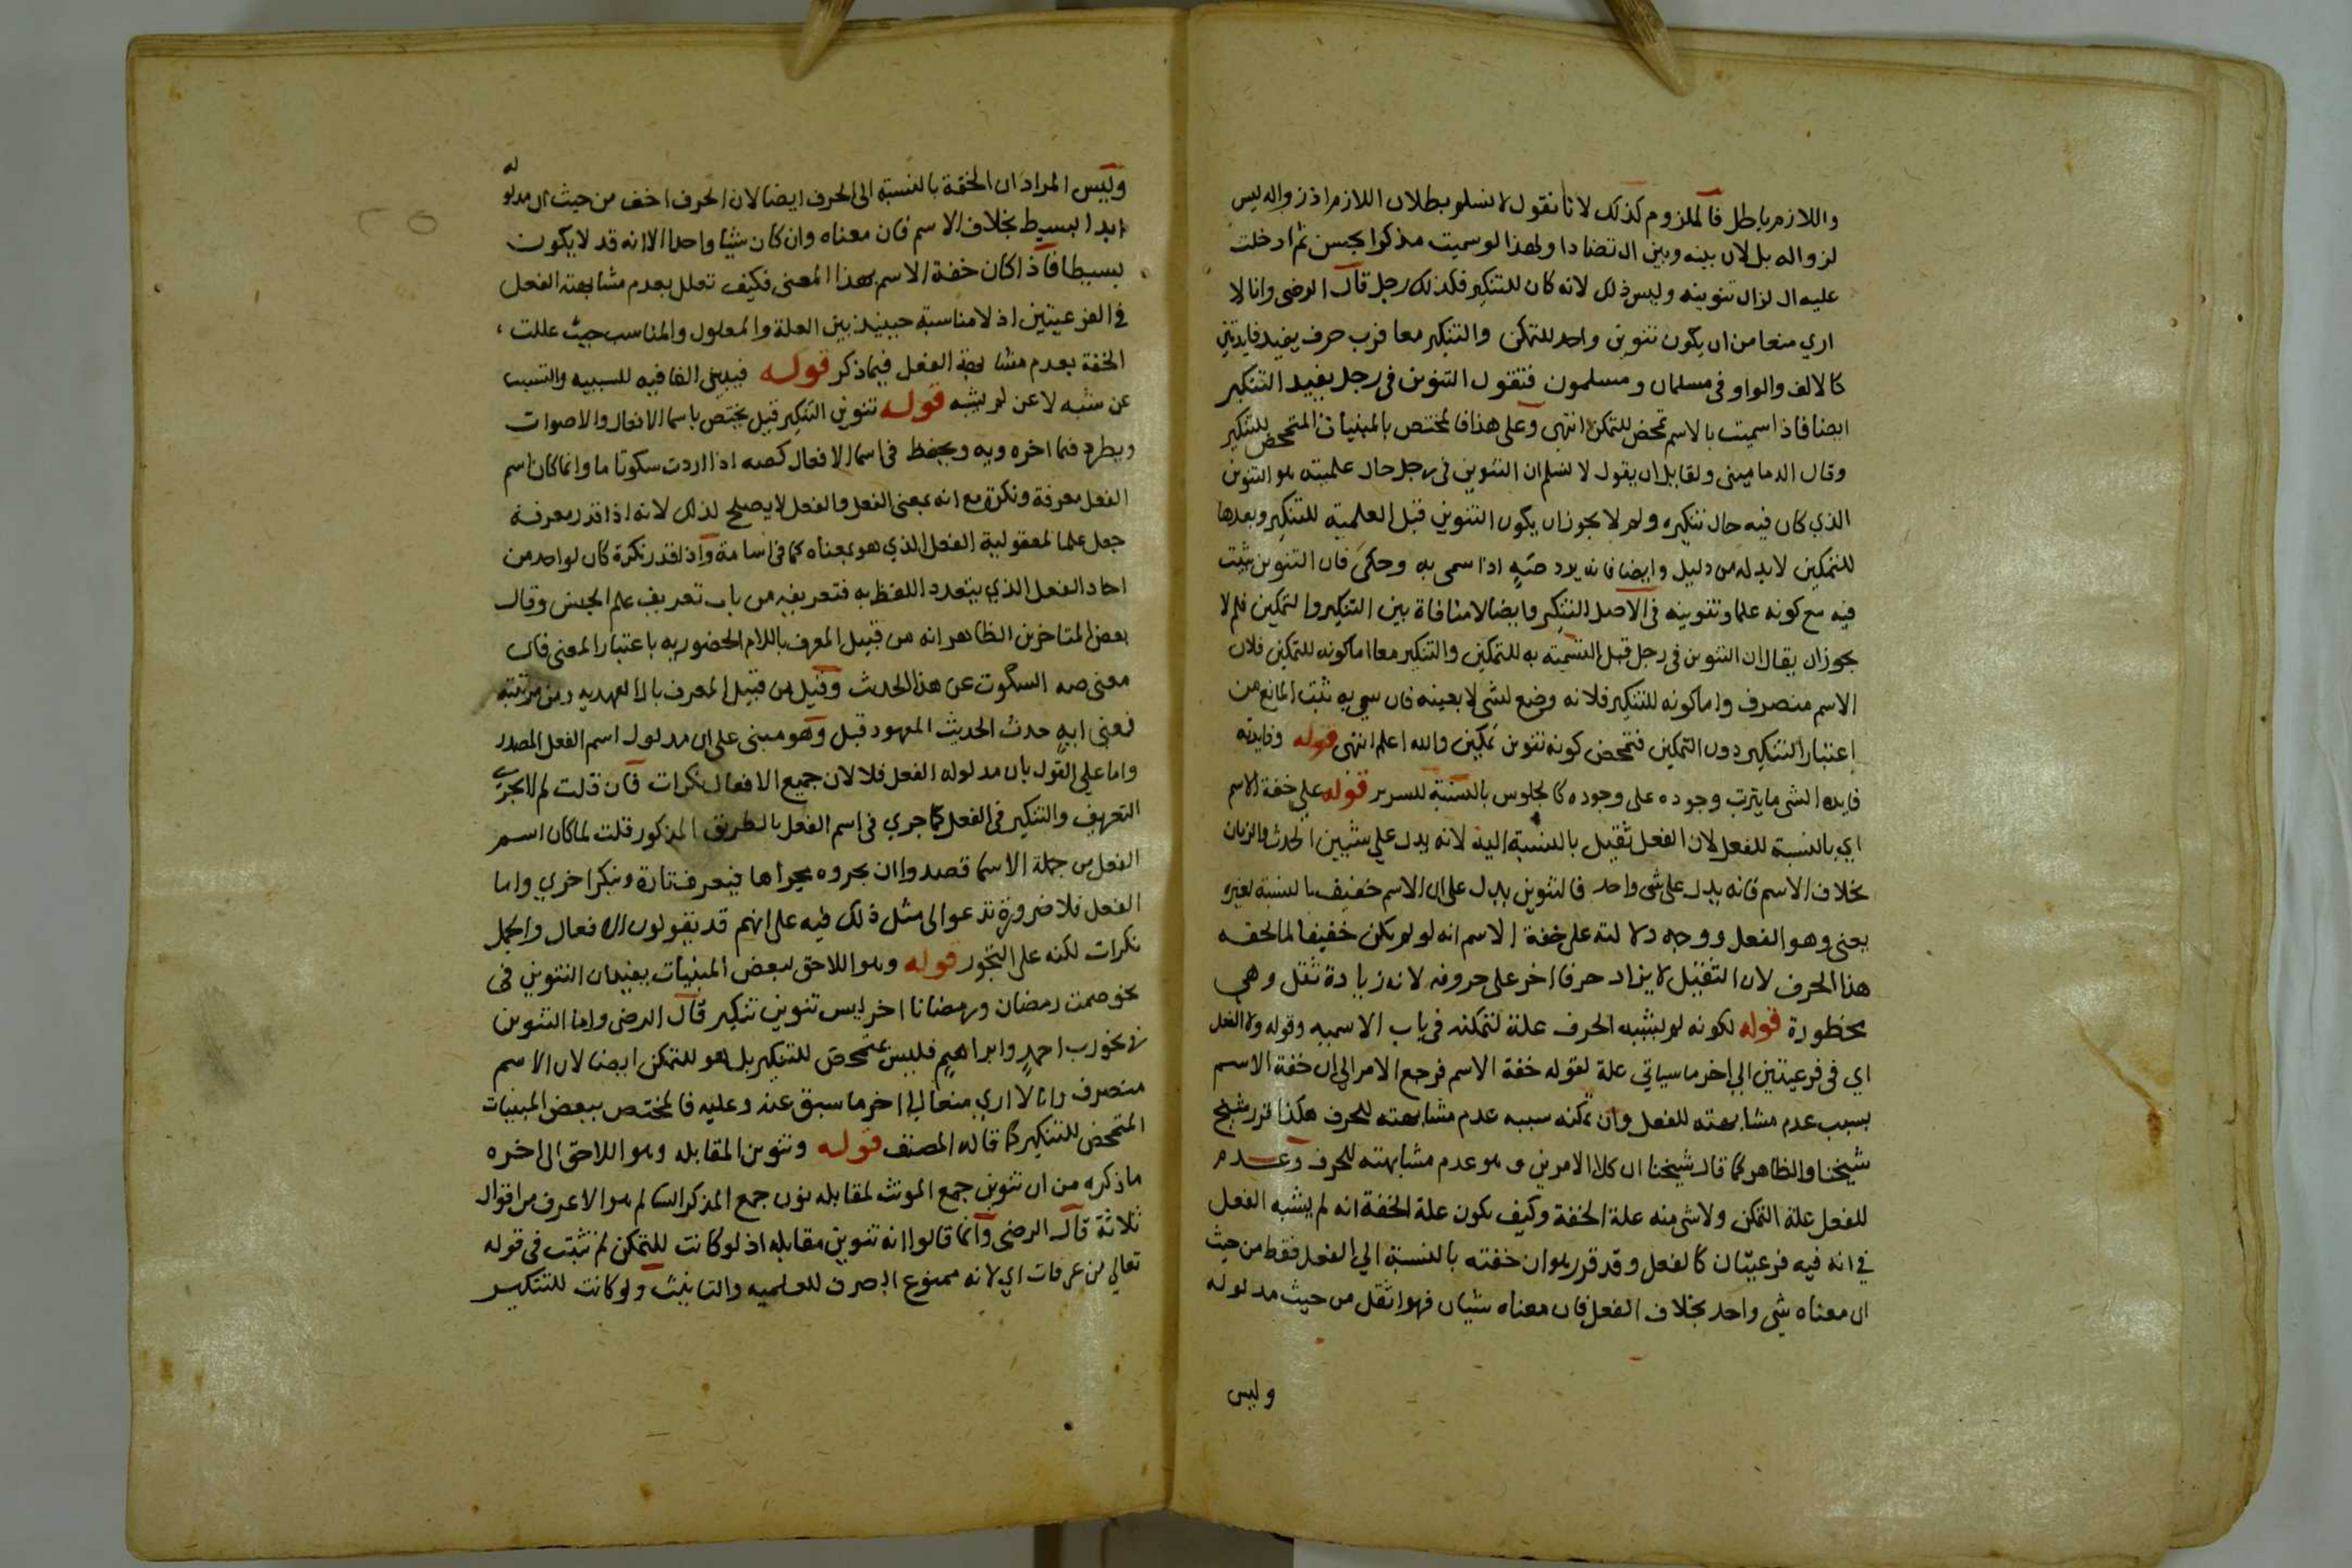 واللازم باطل فالملزوم كذلك لانا نقول لا نسلم بطلان اللازم اذ زواله ليس
لزواله بل لان بينه وبين ال تضادا ولهذا لو سميت مذكرا بحسن ثم ادخلت
عليه ال لزال تنوينه وليس ذلك لانه كان للتنكير فكذلك رجل قال الرضى وانا لا
ارى منعا من ان يكون تنوين واحد للتمكن والتنكير معا فرب حرف يفيد فايدتين
كالالف والواو فى مسلمان ومسلمون فنقول التنوين فى رجل يفيد التنكير
ايضا فاذا سميت بالاسم تمحض للتمكن انتهى وعلى هذا فالمختص بالمبنيات المتمحض للتنكير
وقال الدمامينى ولقايل ان يقول لا نسلم ان التنوين فى رجل حال علميته هو التنوين
الذي كان فيه حال تنكيره ولم لا يجوز ان يكون التنوين قبل العلمية للتنكير وبعدها
للتمكين لابد له من دليل وايضا فانه يرد صَهٍ اذا سمى به وحكى فان التنوين يثبت
فيه مع كونه علما وتنوينه فى الاصل للتنكير وايضا لا منافاة بين التنكير والتمكين فلم لا
يجوز ان يقال ان التنوين فى رجل قبل التسمية به للتمكين والتنكير معا اما كونه للتمكين فلان
الاسم منصرف واما كونه للتنكير فلانه وضع لشى لا بعينه فان سمي به ثبت المانع من
اعتبار التنكير دون التمكين فتمحض كونه تنوين تمكين والله اعلم انتهى قوله وفايدته
فايدة الشى ما يترتب وجوده على وجوده كالجلوس بالنسبة للسرير قوله على خفة الاسم
اي بالنسبة للفعل لان الفعل ثقيل بالنسبة اليه لانه يدل على شيين الحدث والزمان
بخلاف الاسم فانه يدل على شى واحد فالتنوين يدل على ان الاسم خفيف بالنسبة لغيره
يعنى وهو الفعل ووجه دلالته على خفة الاسم انه لو لم يكن خفيفا لما لحقه
هذا الحرف لان الثقيل لا يزاد حرفا اخر على حروفه لانه زيادة ثقل وهي
محظورة قوله لكونه لم يشبه الحرف علة لتمكنه فى باب الاسميه وقوله ولا الفعل
اي فى فرعيتين الى اخر ما سياتي علة لقوله خفة الاسم فرجع الامر الى ان خفة الاسم
بسبب عدم مشابهته للفعل وان تمكنه سببه عدم مشابهته للحرف هكذا قرر شيخ
شيخنا والظاهر كما قال شيخنا ان كلا الامرين وهو عدم مشابهته للحرف وعدم
للفعل علة التمكن ولا شى منه علة الخفة وكيف يكون علة الخفة انه لم يشبه الفعل
في انه فيه فرعيتان كالفعل وقد قرر هو ان خفته بالنسبة الي الفعل فقط من حيث
ان معناه شي واحد بخلاف الفعل فان معناه شيان فهو اثقل من حيث مدلوله
وليس
وليس المراد ان الخفة بالنسبة الى الحرف ايضا لان الحرف اخف من حيث ان مدلوله
ابدا بسيط بخلاف الاسم فان معناه وان كان شيا واحدا الا انه قد لا يكون
بسيطا فاذا كان خفة الاسم بهذا المعنى فكيف تعلل بعدم مشابهته الفعل
في الفرعيتين اذ لا مناسبة حينيذ بين العلة والمعلول والمناسب حيث عللت
الخفة بعدم مشابهة الفعل فيما ذكر قوله فيبنى الفا فيه للسببيه والتسبب
عن شبه لا عن لم يشبه قوله تنوين التنكير قيل يختص باسما الافعال والاصوات
ويطرد فيما اخره ويه ويحفظ فى اسما الافعال كصه اذا اردت سكوتا ما وانما كان اسم
الفعل معرفة ونكرة مع انه بمعنى الفعل والفعل لا يصلح لذلك لانه اذا قدر معرفة
جعل علما لمعقولية الفعل الذي هو بمعناه كما فى اسامة واذا قدر نكرة كان لواحد من
احاد الفعل الذي يتعدد اللفظ به فتعريفه من باب تعريف علم الجنس وقال
بعض المتاخرين الظاهر انه من قبيل المعرف باللام الحضوريه باعتبار المعنى فان
معنى صه السكوت عن هذا الحديث وقيل من قبيل المعرف بال العهديه
فمعنى ايهِ حدث الحديث المعهود قيل وهو مبنى على ان مدلول اسم الفعل المصدر
واما على القول بان مدلوله الفعل فلا لان جميع الافعال نكرات فان قلت لم لا يجري
التعريف والتنكير فى الفعل كما جري فى اسم الفعل بالطريق المذكور قلت لما كان اسم
الفعل من جملة الاسما قصدوا ان يجروه مجراها فيعرف تارة وينكر اخري واما
الفعل فلا ضرورة تدعو الى مثل ذلك فيه على انهم قد يقولون الافعال والجمل
نكرات لكنه على التجوز قوله وهو اللاحق لبعض المبنيات يفيد ان التنوين فى
نحو صمت رمضان ورمضانا اخر ليس تنوين تنكير قال الرضى واما التنوين
فى نحو رب احمدٍ وابراهيمٍ فليس متمحض للتنكير بل هو للتمكن ايضا لان الاسم
منصرف وانا لا اري منعا الى اخر ما سبق عنه وعليه فالمختص ببعض المبنيات
المتمحض للتنكير كما قاله المصنف قوله وتنوين المقابله وهو اللاحق الى اخره
ما ذكره من ان تنوين جمع المونث لمقابله نون جمع المذكر السالم هو الاعرف من اقوال
ثلاثة قال الرضى وانما قالوا انه تنوين مقابله اذ لو كانت للتمكن لم تثبت فى قوله
تعالى من عرفات اي لانه ممنوع الصرف للعلميه والتانيث ولو كانت للتنكير